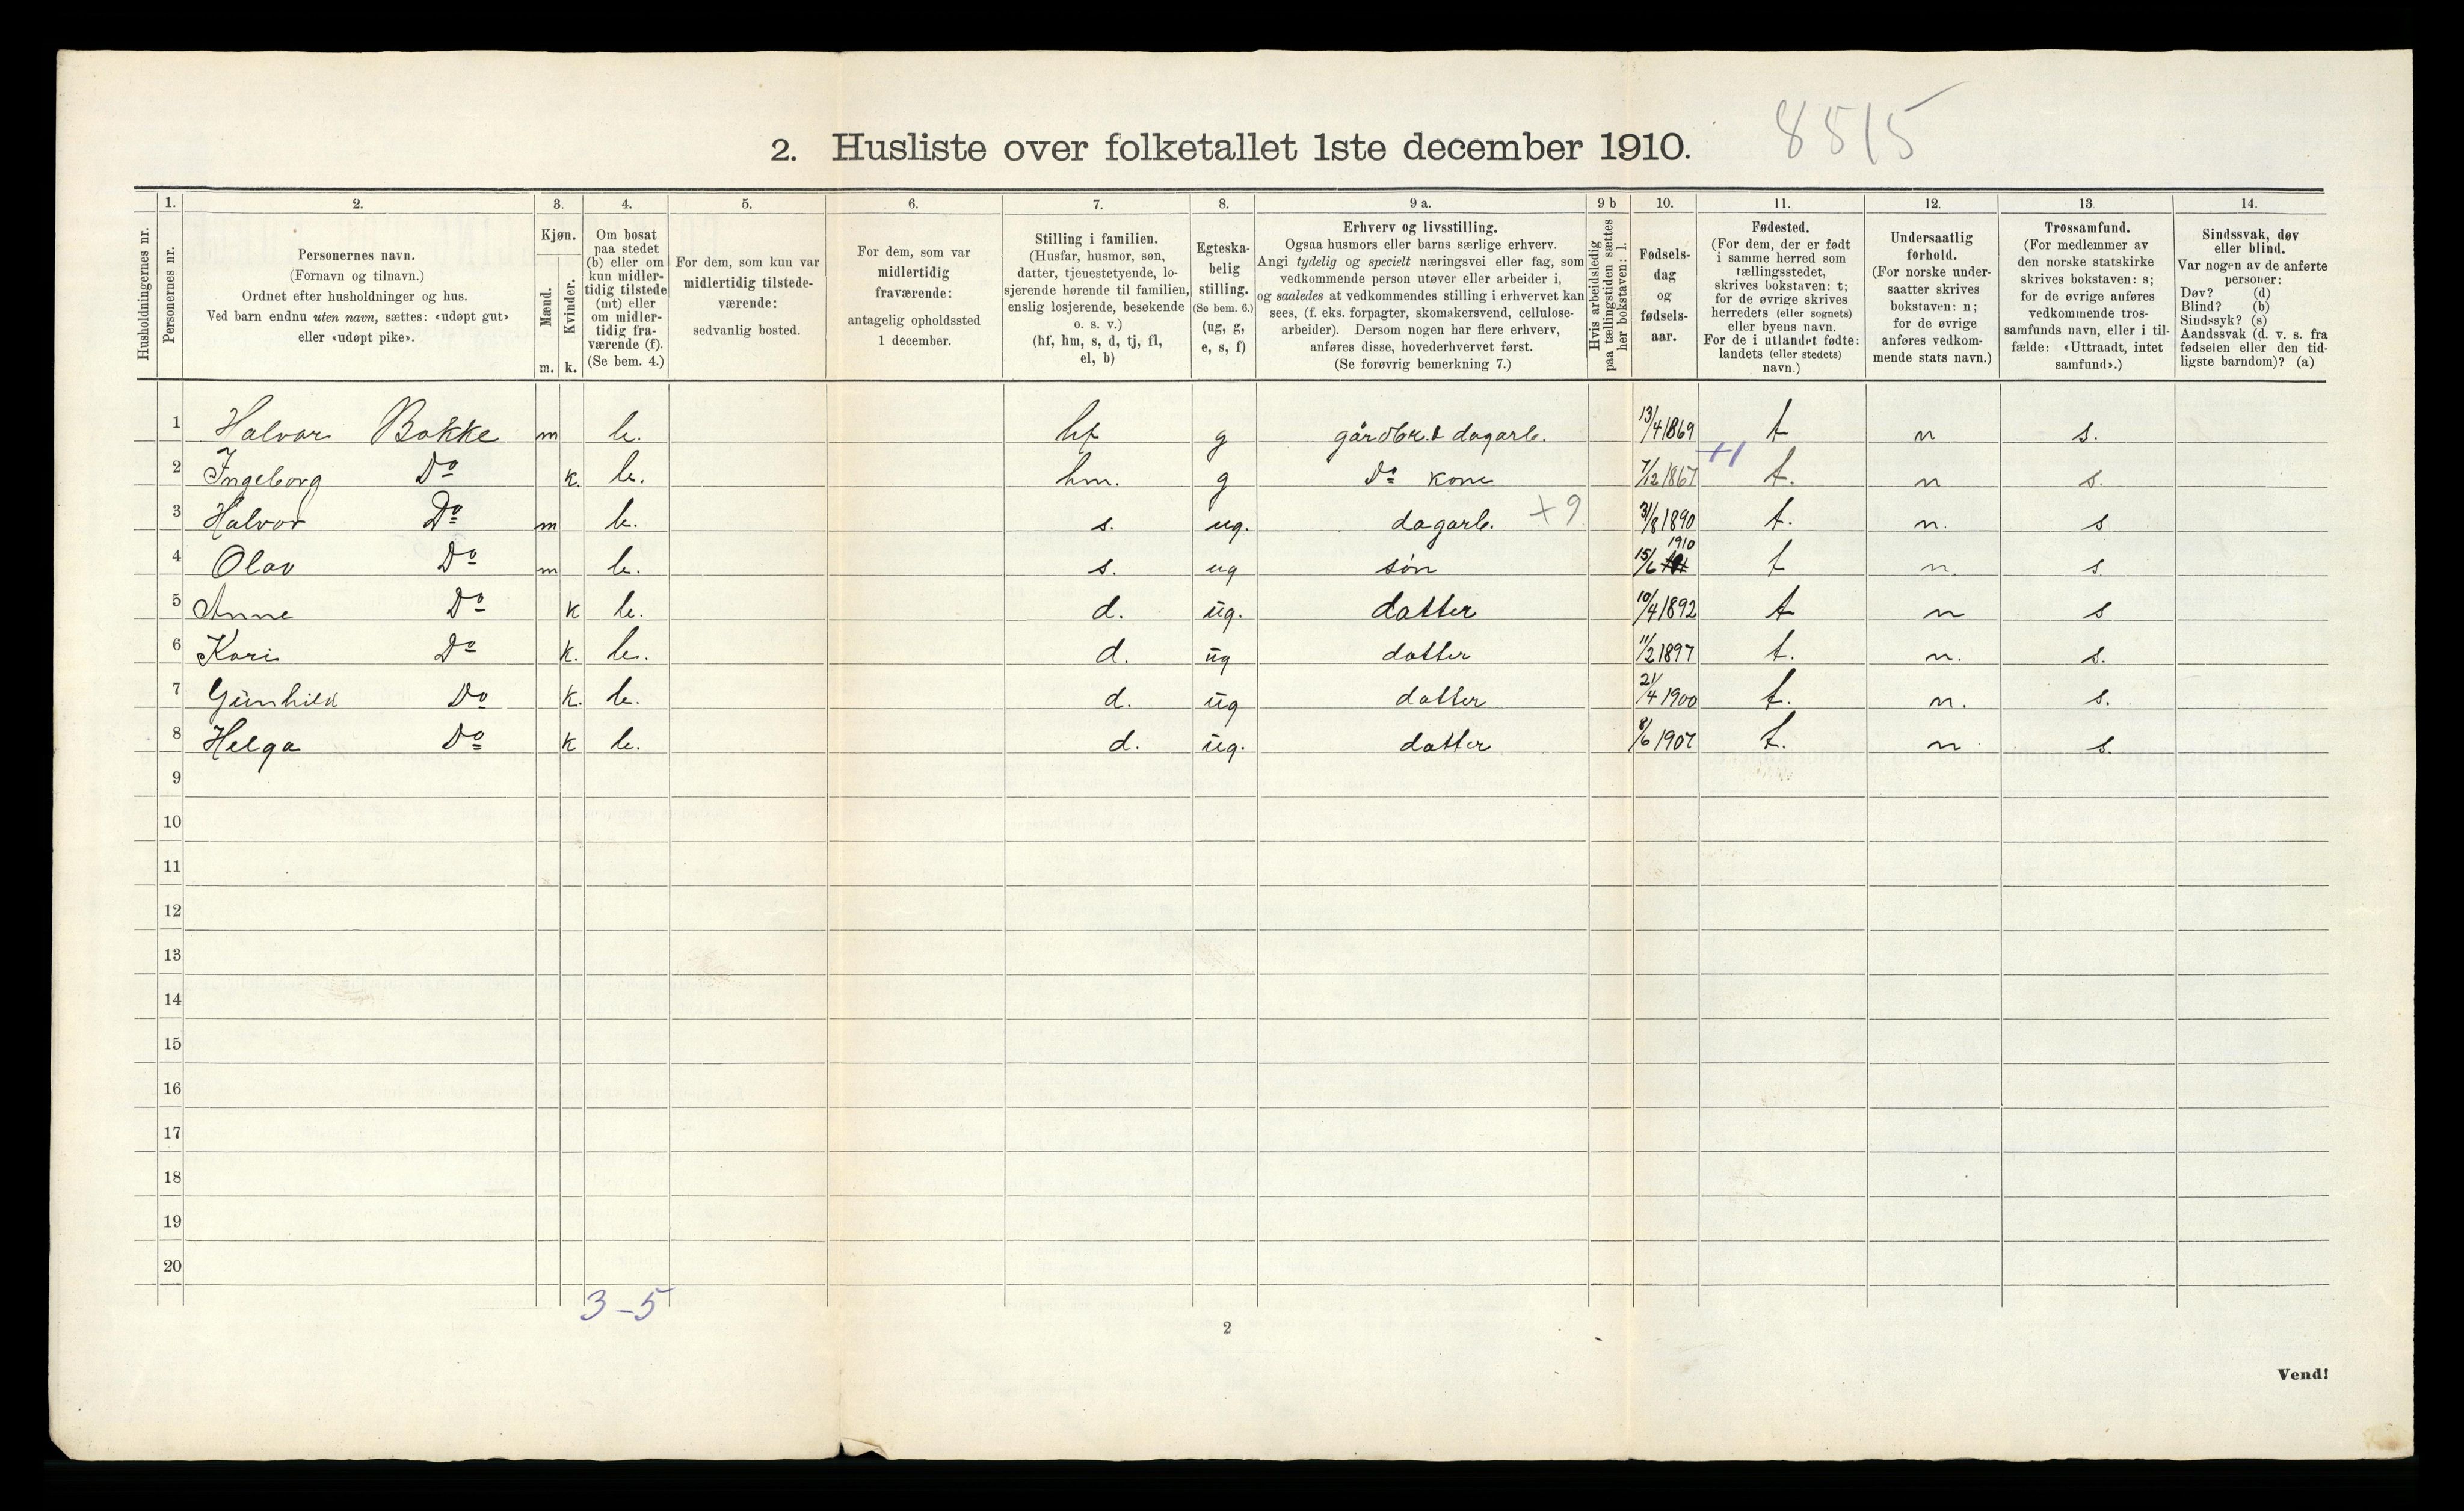 2. Husliste over folketallet 1ste december 1910. 8515
Husholdningernes nr.
1.
Personernes nr.
2.
Personernes navn.
(Fornavn og tilnavn.)
Ordnet efter husholdninger og hus.
Ved barn endnu uten navn, sættes: «udøpt gut»
eller «udøpt pike».
3.
Kjøn.
Mænd.
Kvinder.
m. k.
4.
Om bosat
paa stedet
(b) eller om
kun midler-
tidig tilstede
(mt) eller
om midler-
tidig fra-
værende (f).
(Se bem. 4.)
5.
For dem, som kun var
midlertidig tilstede-
værende:
sedvanlig bosted.
6.
For dem, som var
midlertidig
fraværende:
antagelig opholdssted
1 december.
7.
Stilling i familien.
(Husfar, husmor, søn,
datter, tjenestetyende, lo-
sjerende hørende til familien,
enslig losjerende, besøkende
o. s. v.)
(hf, hm, s, d, tj, fl,
el, b)
8.
Egteska-
belig
stilling.
(Se bem. 6.)
(ug, g,
e, s, f)
9 a.
Erhverv og livsstilling.
Ogsaa husmors eller barns særlige erhverv.
Angi tydelig og specielt næringsvei eller fag, som
vedkommende person utøver eller arbeider i,
og saaledes at vedkommendes stilling i erhvervet kan
sees, (f. eks. forpagter, skomakersvend, cellulose-
arbeider). Dersom nogen har flere erhverv,
anføres disse, hovederhvervet først.
(Se forøvrig bemerkning 7.)
9 b
Hvis arbeidsledig
paa tællingstiden sættes
her bokstaven: l.
10.
Fødsels-
dag
og
fødsels-
aar.
11.
Fødested.
(For dem, der er født
i samme herred som
tællingsstedet,
skrives bokstaven: t;
for de øvrige skrives
herredets (eller sognets)
eller byens navn.
For de i utlandet fødte:
landets (eller stedets)
navn.)
12.
Undersaatlig
forhold.
(For norske under-
saatter skrives
bokstaven: n;
for de øvrige
anføres vedkom-
mende stats navn.)
13
Trossamfund.
(For medlemmer av
den norske statskirke
skrives bokstaven: s;
for de øvrige anføres
vedkommende tros-
samfunds navn, eller i til-
fælde: «Uttraadt, intet
samfund».)
14.
Sindssvak, døv
eller blind.
Var nogen av de anførte
personer:
Døv? (d)
Blind? (b)
Sindssyk? (s)
Aandssvak (d. v. s. fra
fødselen eller den tid-
ligste barndom)? (a)
1 Halvor Bakke m b. hf g gårdbr. & dagarb. 13/4 1869 t n s.
2 Ingeborg Do k. b. hm. g Do kone 7/12 1867 +1 t. n s.
3 Halvor Do m b. s. ug. dagarb. +9 31/8 1890 t. n. s
4 Olav Do m b. s. ug søn 15/6 1910 t n. s
5 Anne Do k b. d. ug. datter 10/4 1892 t n s
6 Kari Do k. b. d. ug datter 11/2 1897 t. n. s.
7 Gunhild Do k. b. d. ug datter 21/4 1900 t. n. s.
8 Helga Do k b. d. ug. datter 8/6 1907 t. n s.
9
10
11
12
13
14
15
16
17
18
19
20
3-5
2
Vend!